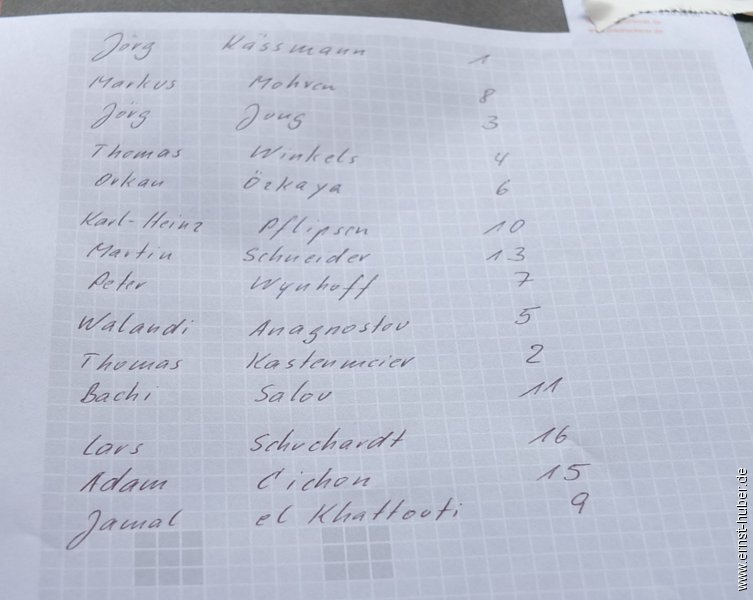 Jörg Kässmann 1
Markus Mohren 8
Jörg Jung 3
Thomas Winkels 4
Orkan Özkaya 6
Karl-Heinz Pflipsen 10
Martin Schneider 13
Peter Wynhoff 7
Walandi Anagnostou 5
Thomas Kastenmeier 2
Bachi Salou 11
Lars Schuchardt 16
Adam Cichon 15
Jamal el Khattouti 9
www.ernst-huber.de